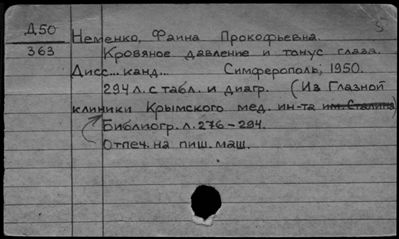 Д50
363
Неменко, Фаина Прокофьевна.
Кровяное давление и тонус глаза.
Дисс... канд... Симферополь, 1950.
294 л. с табл. и диагр. (Из Глазной
клиники Крымского мед. ин-та им. Сталина)
Библиогр. л. 276-294.
Отпеч. на пиш. маш.
5